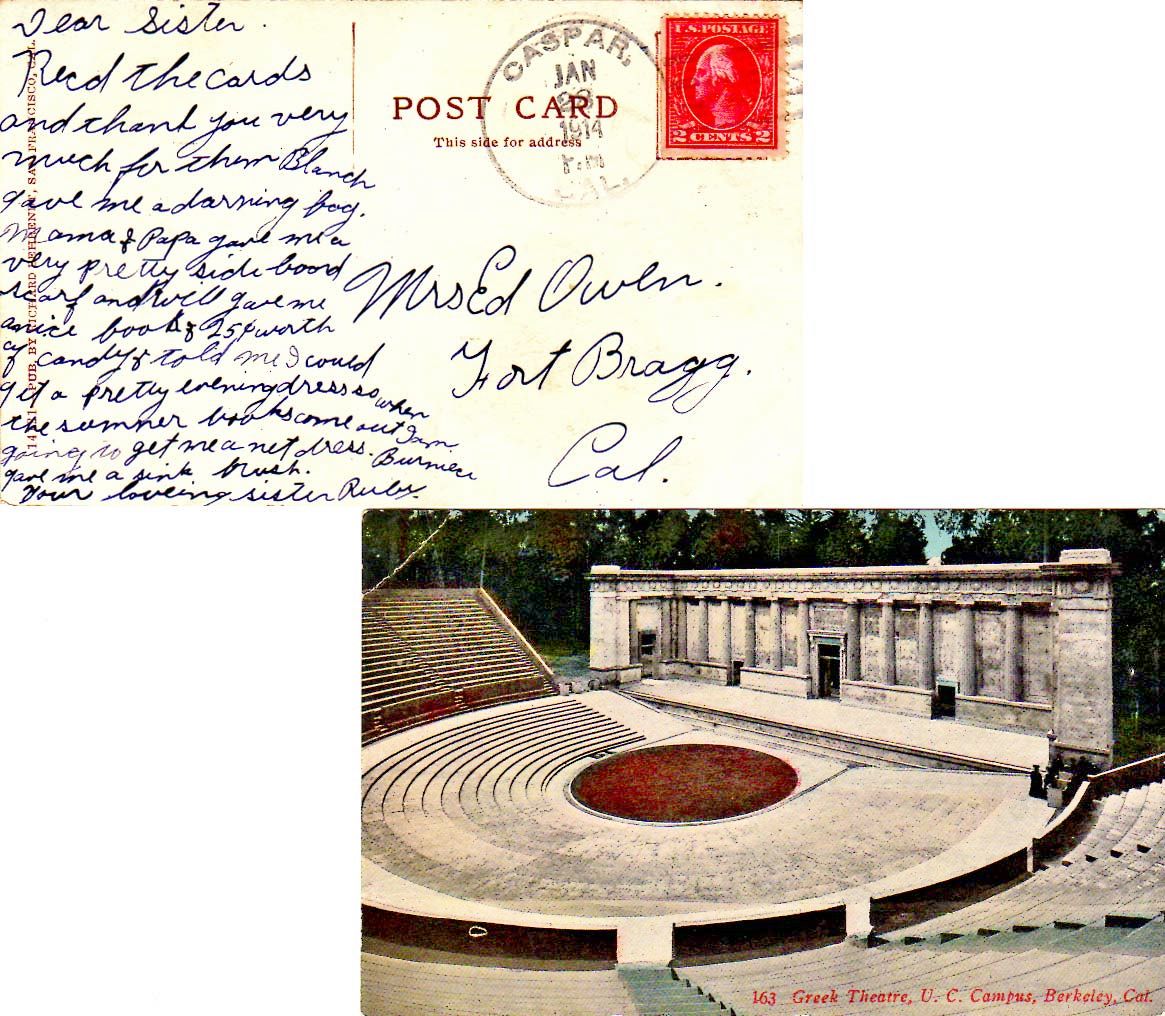 Dear Sister.
Recd the cards
and thank you very
much for them Blanch
gave me a darning bag.
Mama & Papa gave me a
very pretty side board
scarf and Will gave me
a nice book & 25¢ worth
of candy & told me I could
get a pretty evening dress so when
the summer books come out I am
going to get me a net dress. Burniece
gave me a sink brush.
Your loveing sister Ruby.
PUB. BY RICHARD BEHRENDT, SAN FRANCISCO, CAL.
POST CARD
This side for address
CASPAR,
JAN
1914
CAL.
U.S. POSTAGE
2 CENTS 2
Mrs Ed Owen.
Fort Bragg.
Cal.
163 Greek Theatre, U. C. Campus, Berkeley, Cal.